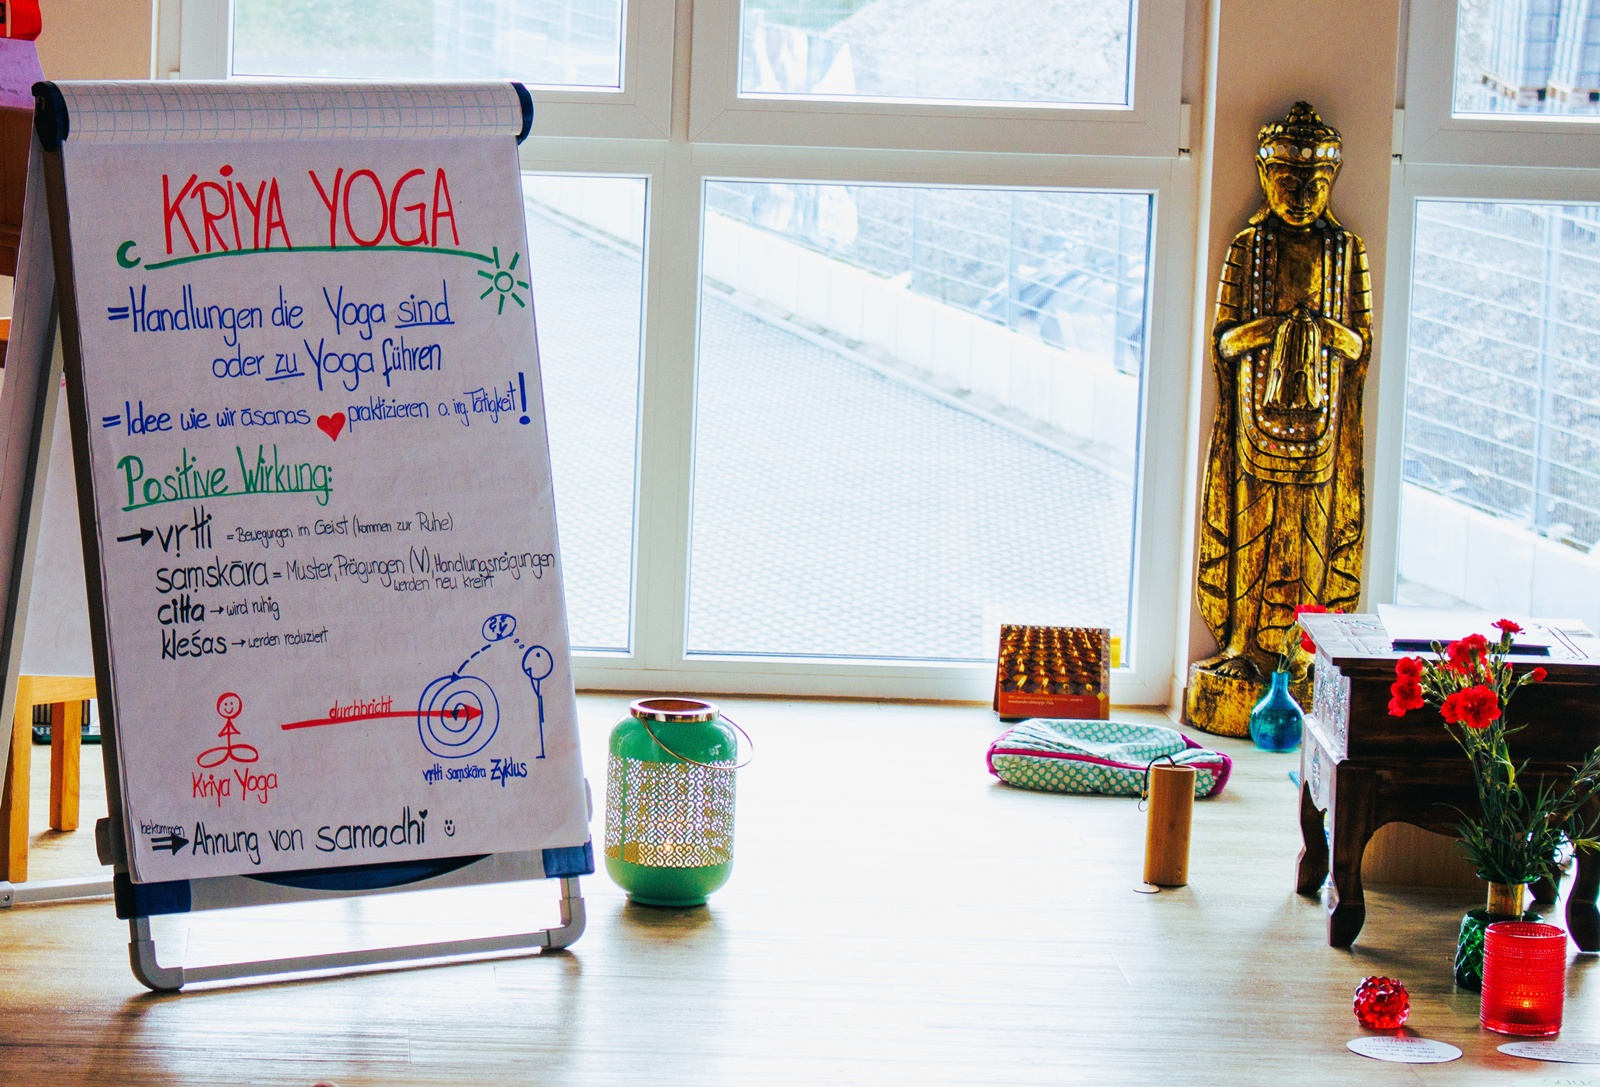 KRiYA YOGA
=Handlungen die Yoga sind
oder zu Yoga führen
=Idee wie wir āsanas ♥ praktizieren o. irg. Tätigkeit!
Positive Wirkung:
→vṛtti = Bewegungen im Geist (kommen zur Ruhe)
saṃskāra = Muster, Prägungen (V), Handlungsneigungen
werden neu kreirt
citta → wird ruhig
kleśas → werden reduziert
??
durchbricht
Kriya Yoga
vṛtti saṃskāra Zyklus
bekommen
⇒ Ahnung von samadhi
NIYAMA